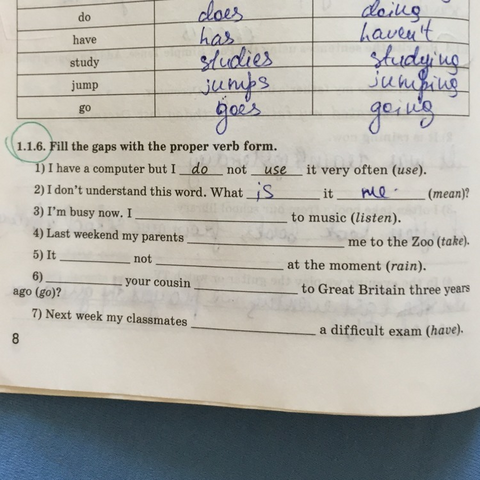 do does doing
have has haven't
study studies studying
jump jumps jumping
go goes going
1.1.6. Fill the gaps with the proper verb form.
1) I have a computer but I do not use it very often (use).
2) I don't understand this word. What is it me (mean)?
3) I'm busy now. I ____________ to music (listen).
4) Last weekend my parents ____________ me to the Zoo (take).
5) It ________ not ____________ at the moment (rain).
6) ________ your cousin ____________ to Great Britain three years
ago (go)?
7) Next week my classmates ____________ a difficult exam (have).
8